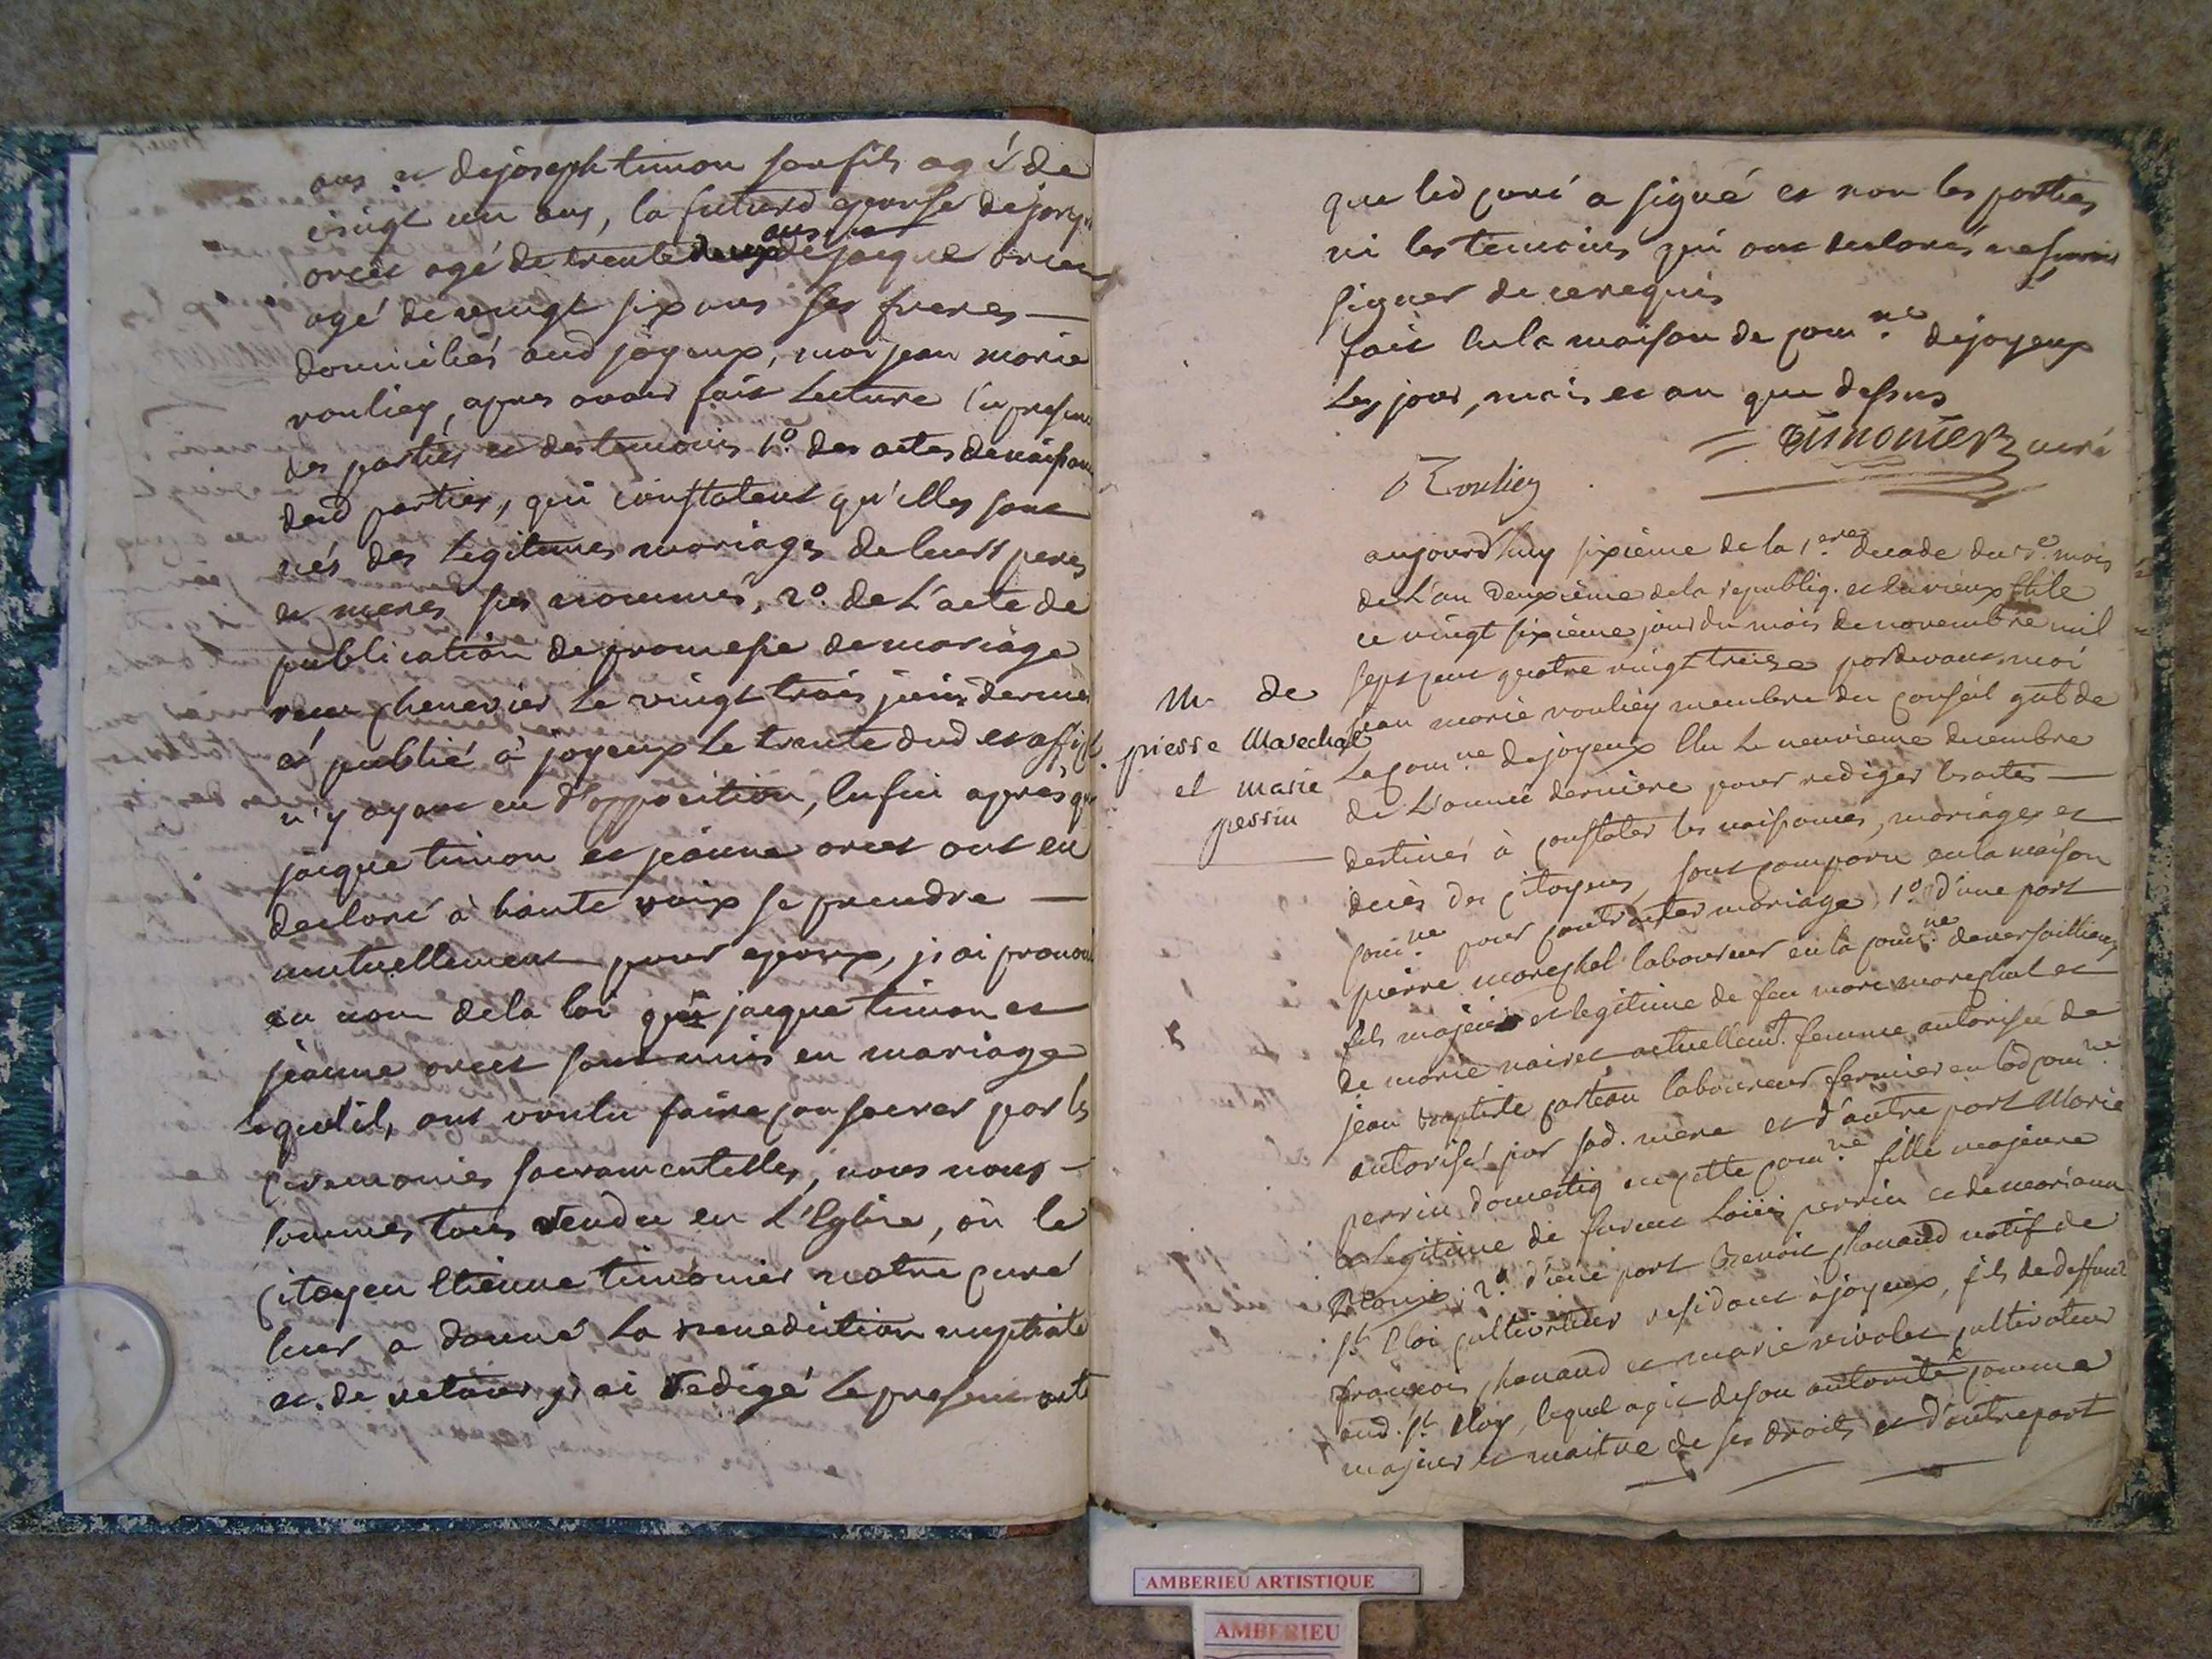 ans et de joseph timon son fils agé de
vingt un ans, la future epouse de
orcet agé de trente deux ans de jacque orcet
agé de vingt six ans ses freres —
domiciliés aud joyeux, moi jean marie
rouliey, apres avoir fait lecture en presence
des parties et des temoins 1º. des actes de naissance
desd parties, qui constatent qu'elles sont
nés des legitimes mariages de leurs peres
et meres sus nommés, 2º. de l'acte de
publication de promesse de mariage
chenevier le vingt trois juin dernier
et publié à joyeux le trente dud et affiché
n'y ayant eu d'opposition, enfin apres que
jacque timon et jeanne orcet ont eu
declaré à haute voix se prendre —
mutuellement pour epoux, j'ai prononcé
au nom de la loi que jacque timon et
jeanne orcet sont unis en mariage
lequel ils ont voulu faire consacrer par les
ceremonies sacramentelles, nous nous —
sommes tous rendu en l'Eglise, où le
citoyen Etienne timonier notre curé
leur a donné la benediction nuptiale
et de retour j'ai redigé le present acte
que led curé a signé et non les parties
ni les temoins qui ont declarés ne savoir
signer de ce requis
fait en la maison de comne. de joyeux
les jour, mois et an que dessus
timonier curé
Rouliey
aujourd'huy sixieme de la 1ere decade du 3e. mois
de l'an deuxième de la republiq. et du vieux stile
ce vingt sixieme jour du mois de novembre mil
sept cent quatre vingt treize pardevant moi
jean marie rouliey membre du conseil gnl de
la comne de joyeux Elu le neuvieme decembre
de l'année derniere pour rediger les actes —
destinés à constater les naissances, mariages et
decès des citoyens, sont comparu en la maison
comne. pour contracter mariage, 1º. d'une part
pierre marechal laboureur en la comne. de versailleux
fils majeur et legitime de feu marc marechal et
de marie naires actuellemt. femme autorisée de
jean baptiste carteau laboureur fermier en lad comne.
autorisé par sad. mere et d'autre part Marie
perrin domestiq en cette comne. fille majeure
et legitime de furent Louis perrin et de mariane
2º. d'une part Benoit chanand natif de
st. Eloi cultivateur residant à joyeux, fils de deffunt
françois chanand et marie rivolet cultivateur
aud. st. Eloy, lequel agit de son autorité comme
majeur et maitre de ses droits et d'autre part
M. de
pierre Marechal
et marie
perrin
AMBERIEU ARTISTIQUE
AMBERIEU